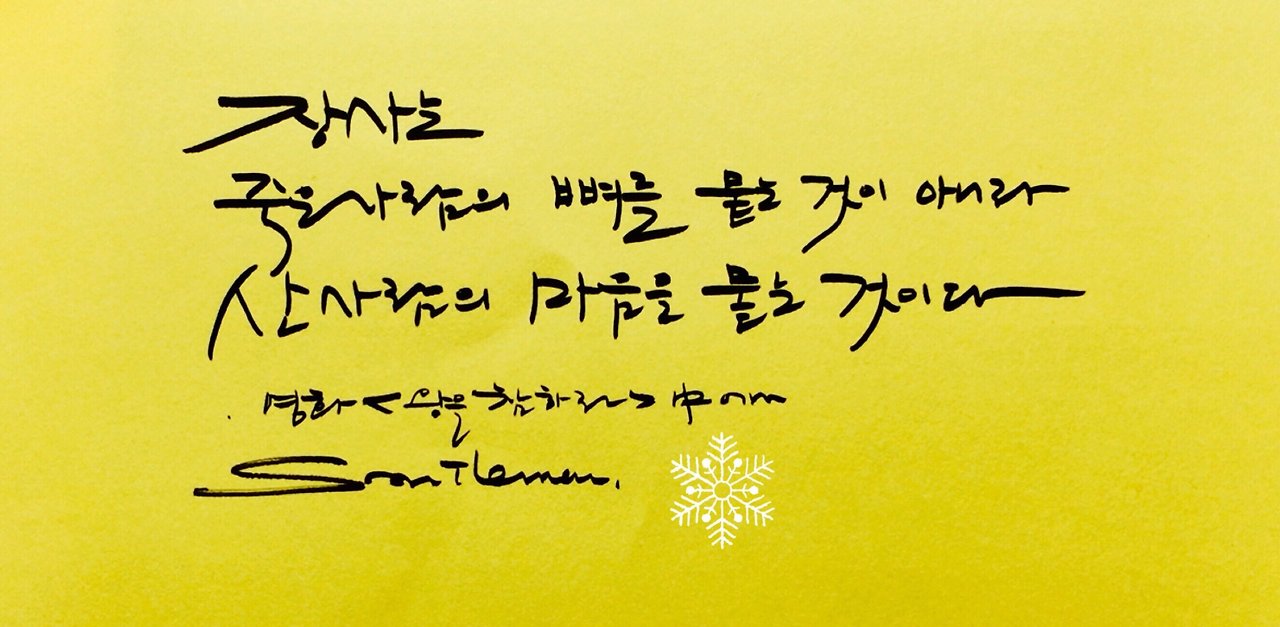 장사는
죽은사람의 뼈를 묻는 것이 아니라
산사람의 마음을 묻는 것이다
영화 <왕을 참하라> 中에서